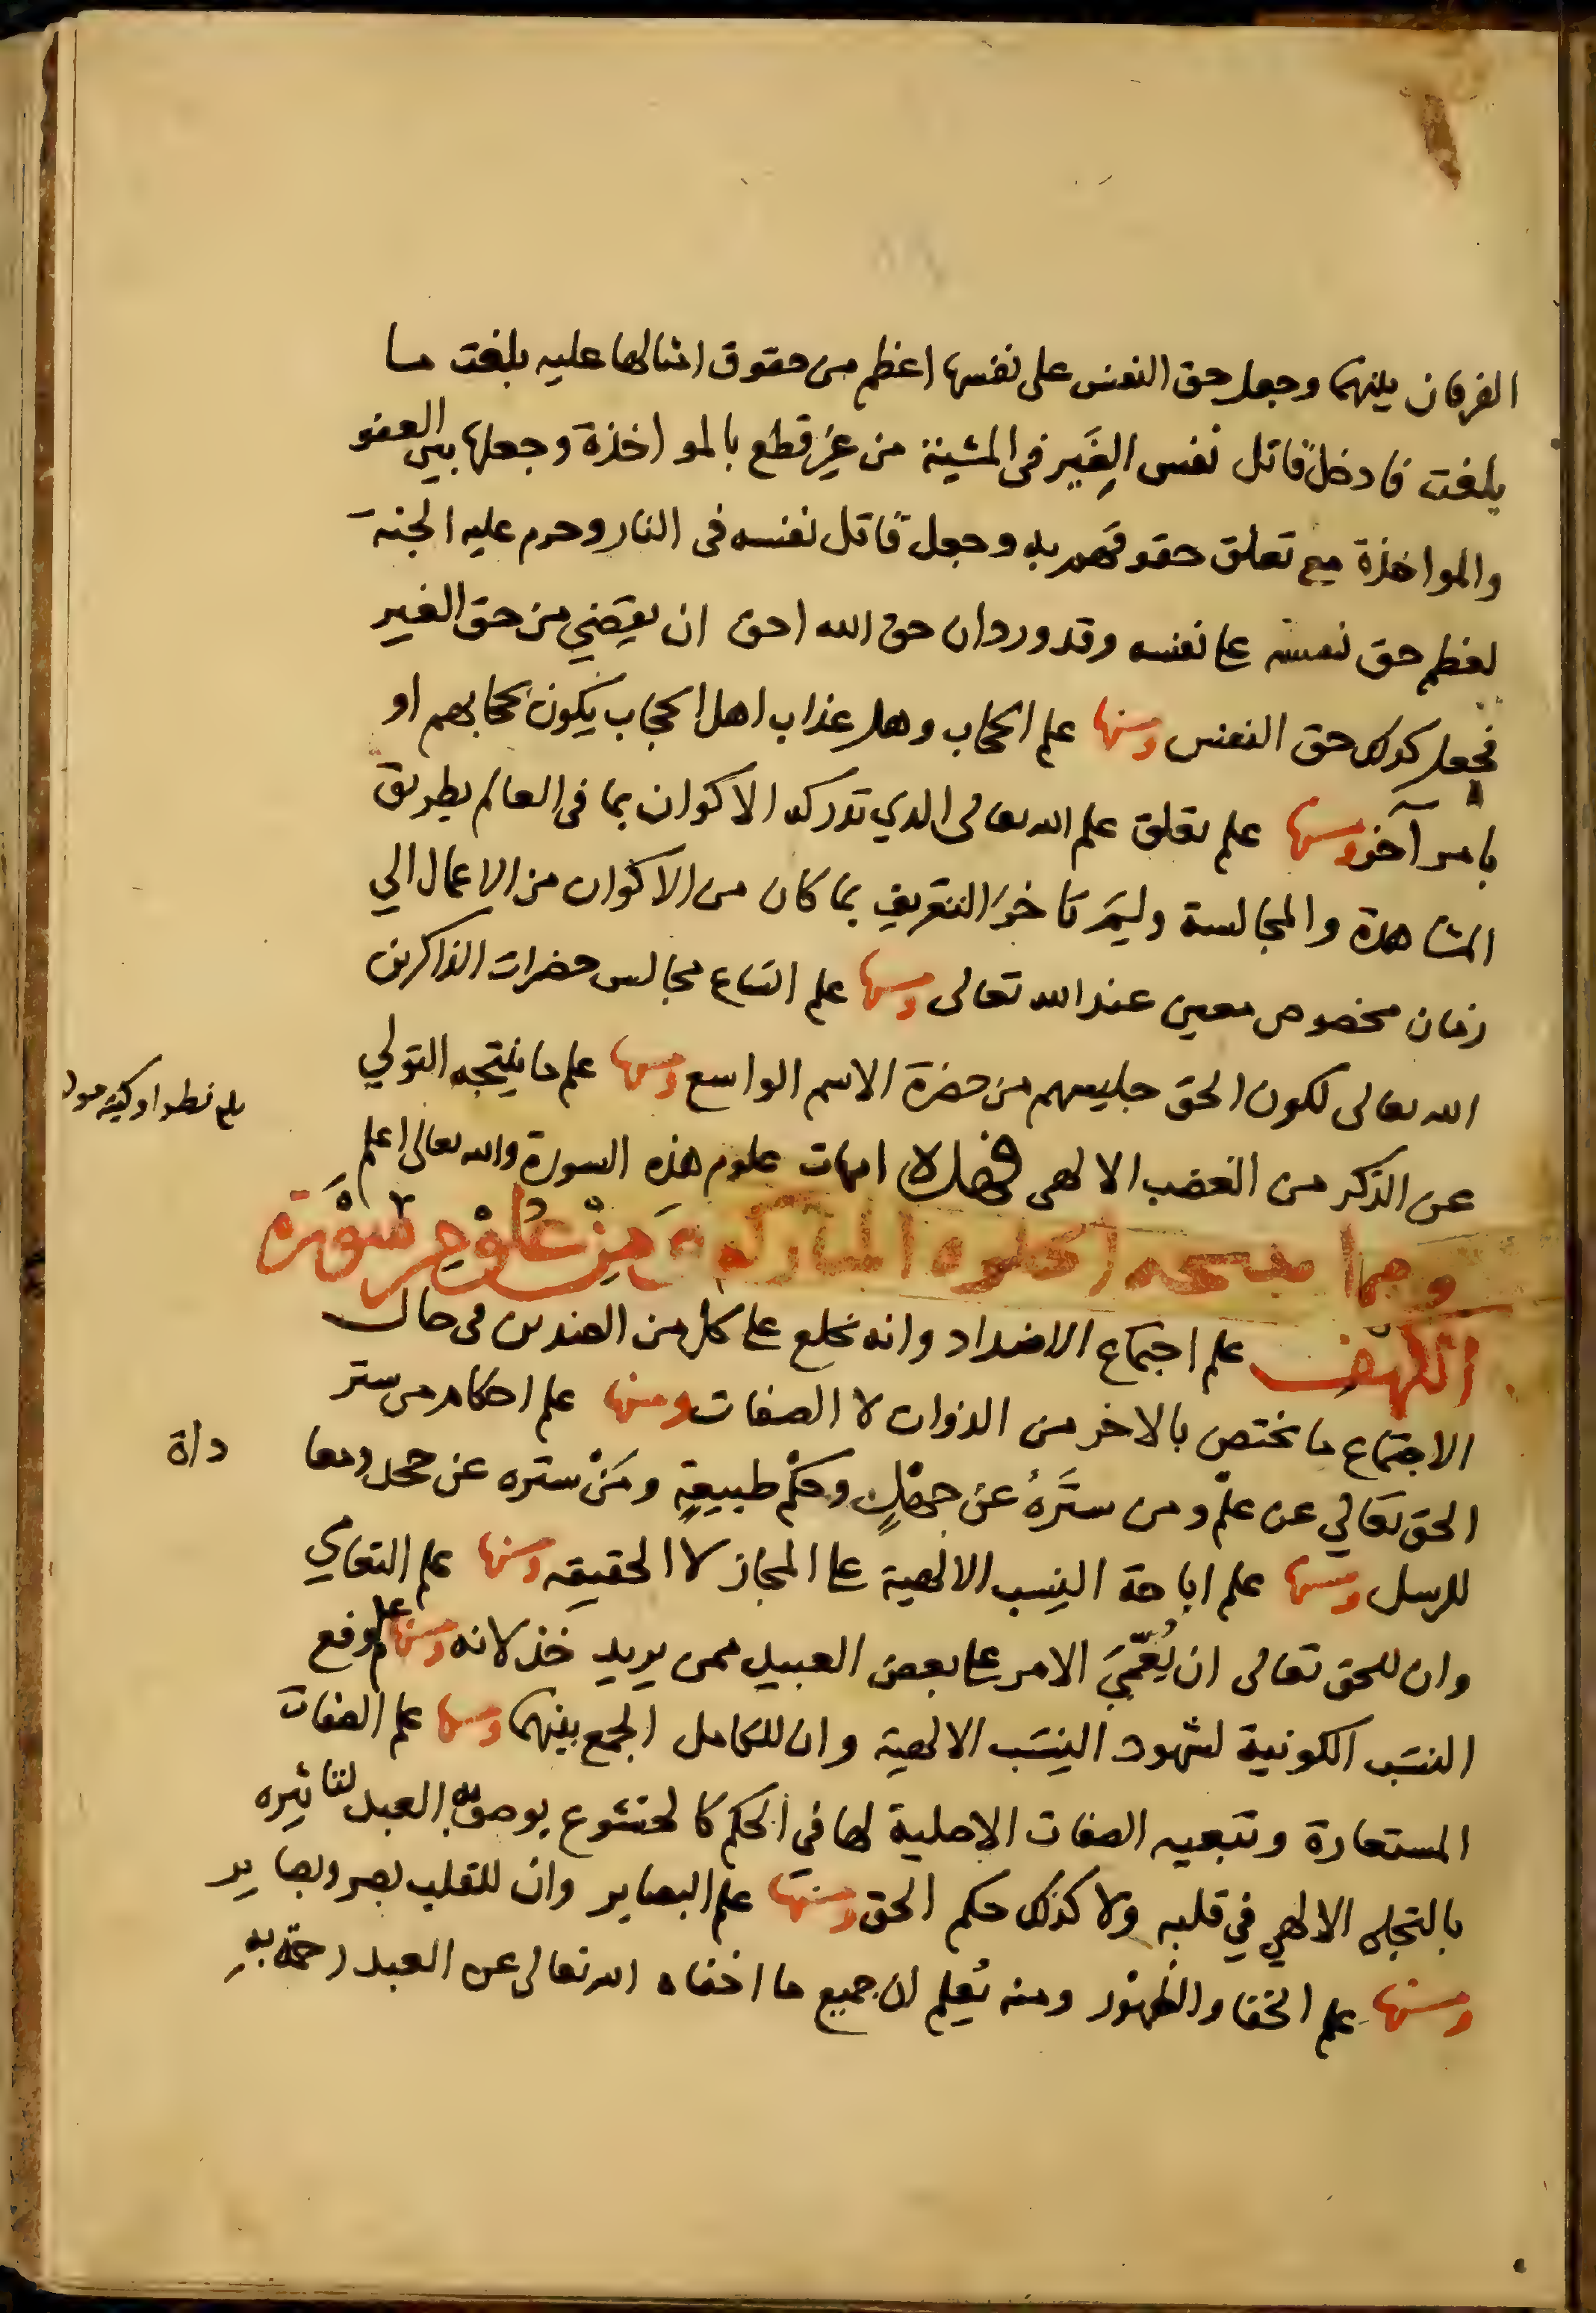 الفرقان بينهما وجعل حق النفس على نفسها اعظم من حقوق امثالها عليه بلغت ما
بلغت فادخل قاتل نفس الغَير في المشيئة من غير قطع بالمواخذة وجعلها بين العفو
والمواخذة مع تعلق حقوقهم به وجعل قاتل نفسه في النار وحرم عليه الجنة
لعظم حق نفسه على نفسه وقد ورد ان حق الله احق ان يقضي من حق الغير
فجعل كذلك حق النفس ومنها علم الحجاب وهل عذاب اهل الحجاب يكون بحجابهم او
بامر آخر ومنها علم تعلق علم الله تعالى الذي تدركه الاكوان بما في العالم بطريق
المشاهدة والمجالسة وليم تاخر التعريف بما كان من الاكوان من الاعمال الي
زمان مخصوص معين عند الله تعالى ومنها علم اتساع مجالس حضرات الذاكرين
الله تعالى لكون الحق جليسهم من حضرة الاسم الواسع ومنها علم ما ينتجه التولي
عن الذكر من الغضب الالهي فهذه امهات علوم هذه السورة والله تعالى اعلم
ومما منحته الخلوة المباركة مِنْ عُلُوْمِ سُوْرَة
الكهف علم اجتماع الاضداد وانه يخلع على كل من الضدين في حال
الاجتماع ما يختص بالاخر من الذوات لا الصفات ومنها علم احكام من ستر
الحق تعالي عن علم ومن سَتَرهُ عن جهلٍ وحكم طبيعةٍ ومَنْ ستره عن جحد ومعا
داة
للرسل ومنها علم اباحة النِسب الالهية على المجاز لا الحقيقه ومنها علم التعامي
وان للحق تعالى ان يُعَمِّيَ الامر على بعض العبيد ممن يريد خذلانه ومنها علم رفع
النسَب الكونية لشهود النِسَب الالهية وان للكامل الجمع بينهما ومنها علم الصفات
المستعارة وتبعيه الصفات الاصلية لها في الحكم كالخشوع يوصف به العبد لتاثيره
بالتجلي الالهي في قلبه ولا كذلك حكم الحق ومنها علم البصاير وان للقلب بصر وبصاير
ومنها علم الخفا والظهور ومنه يُعلم ان جميع ما اخفاه الله تعالى عن العبد رحمة بهِ